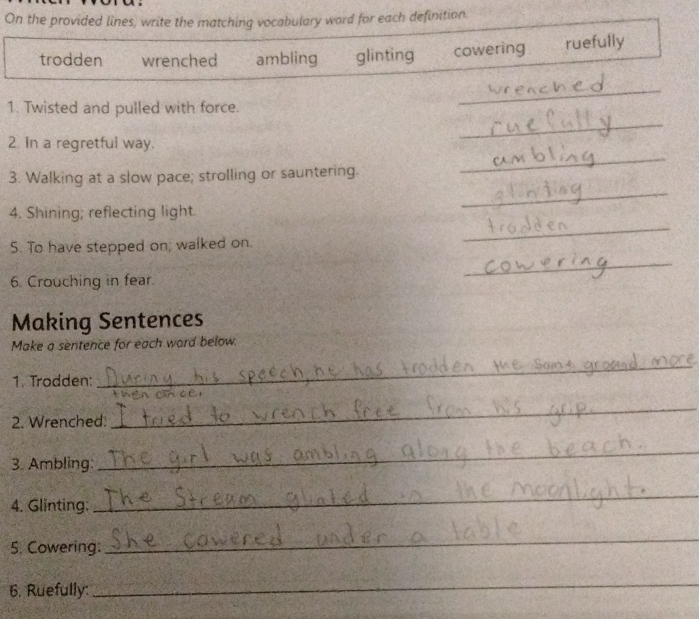 On the provided lines, write the matching vocabulary word for each definition.
trodden wrenched ambling glinting cowering ruefully
1. Twisted and pulled with force. wrenched
2. In a regretful way. ruefully
3. Walking at a slow pace; strolling or sauntering. ambling
4. Shining; reflecting light. glinting
5. To have stepped on; walked on. trodden
6. Crouching in fear. cowering
Making Sentences
Make a sentence for each word below.
1. Trodden: During his speech, he has trodden the same ground more
then once.
2. Wrenched: I tried to wrench free from his grip.
3. Ambling: The girl was ambling along the beach.
4. Glinting: The Stream glinted in the moonlight.
5. Cowering: She cowered under a table
6. Ruefully: